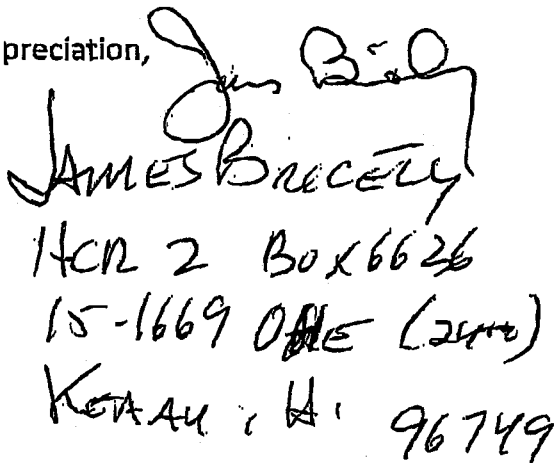 preciation,
JAMES
HCR 2 BOX 6626
15-1669 (24th)
KEAAU, HI. 96749